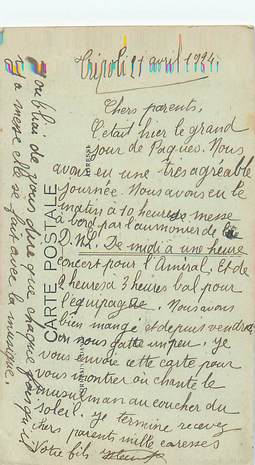 Tripoli 21 avril 1924.
Chers parents,
C'était hier le grand
jour de Pâques. Nous
avons eu une très agréable
journée. Nous avons eu le
matin à 10 heures messe
à bord par l'aumonier de la
D.N.L. De midi à une heure
concert pour l'Amiral, et de
2 heures à 3 heures bal pour
l'équipage. Nous avons
bien mangé et depuis vendredi
on nous gatte un peu. Je
vous envoie cette carte pour
vous montrer où chante le
musulman au coucher du
soleil. Je termine recevez
chers parents mille caresses
Votre fils
J'oubliai de vous dire que chaque fois qu'il
y a messe elle se fait avec la musique.
CARTE POSTALE
ADRESSE